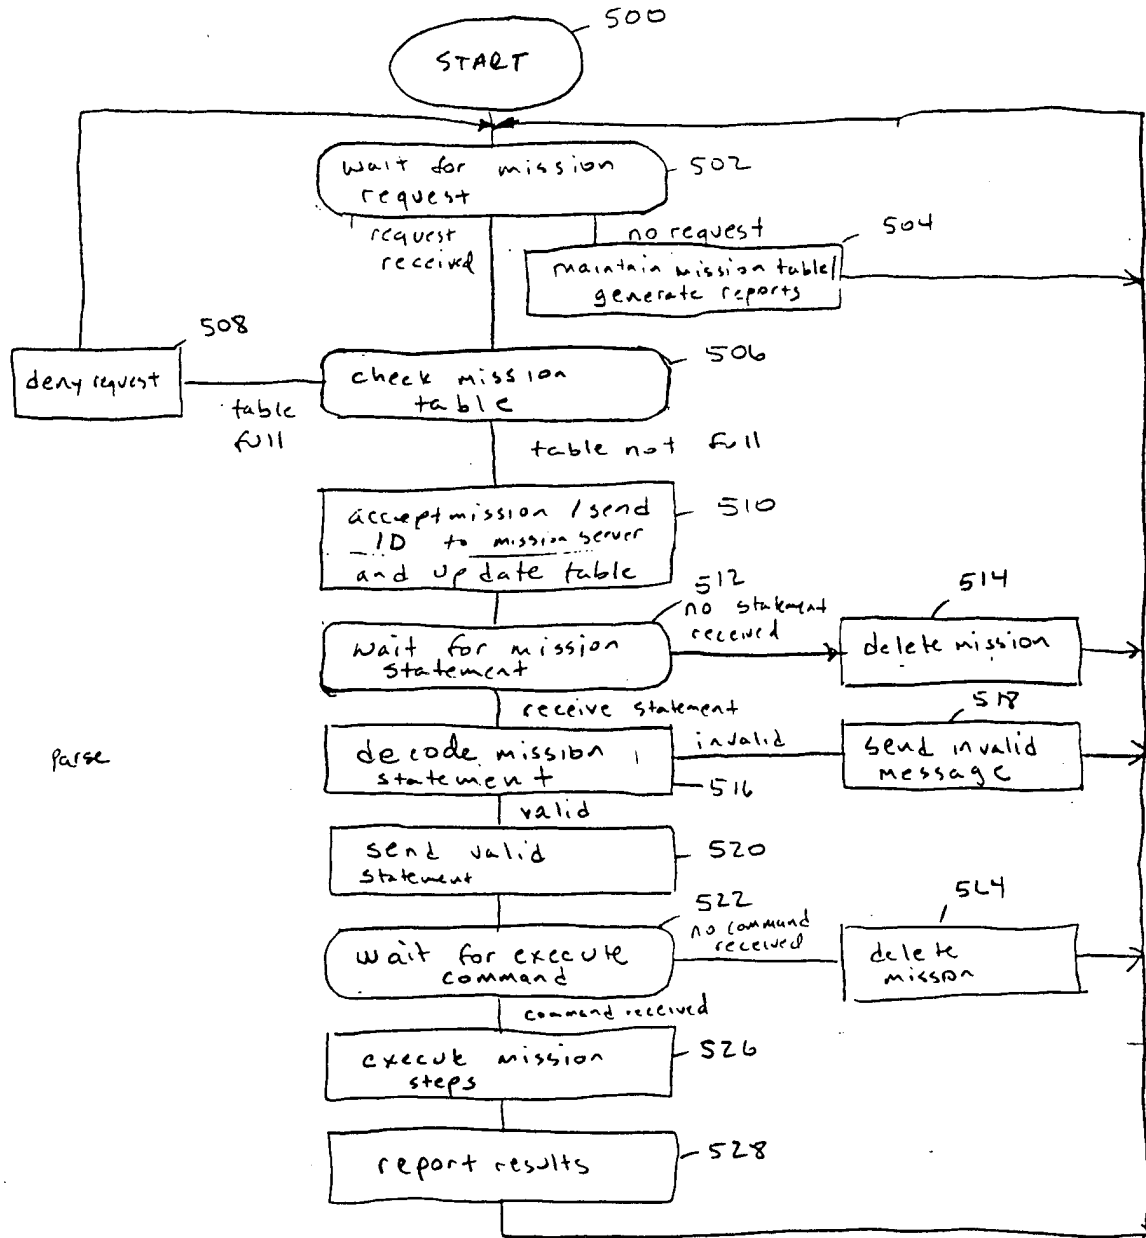 500
START
wait for mission
request
502
request
received
no request
504
maintain mission table/
generate reports
508
deny request
table
full
506
check mission
table
table not full
accept mission / send
ID to mission server
and update table
510
512
no statement
received
514
wait for mission
statement
delete mission
receive statement
518
Parse
decode mission
statement
invalid
516
send invalid
message
valid
send valid
statement
520
522
no command
received
524
wait for execute
command
delete
misson
command received
execute mission
steps
526
report results
528